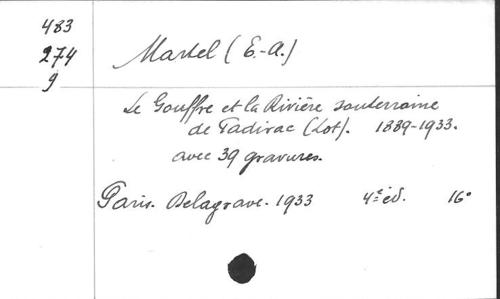 483
274
g
Martel (E.-A.)
Le Gouffre et la Rivière souterraine
de Padirac (Lot). 1889-1933.
avec 39 gravures.
Paris. Delagrave. 1933 4e éd. 16°